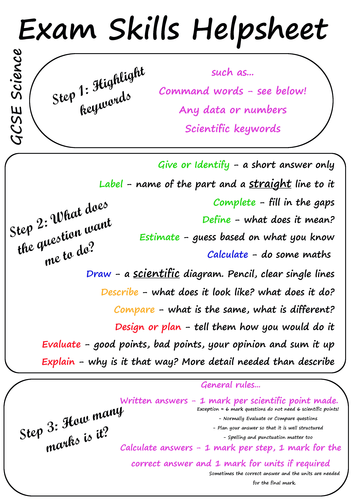 Exam Skills Helpsheet
GCSE Science
Step 1: Highlight
keywords
such as...
Command words - see below!
Any data or numbers
Scientific keywords
Step 2: What does
the question want
me to do?
Give or Identify - a short answer only
Label - name of the part and a straight line to it
Complete - fill in the gaps
Define - what does it mean?
Estimate - guess based on what you know
Calculate - do some maths
Draw - a scientific diagram. Pencil, clear single lines
Describe - what does it look like? what does it do?
Compare - what is the same, what is different?
Design or plan - tell them how you would do it
Evaluate - good points, bad points, your opinion and sum it up
Explain - why is it that way? More detail needed than describe
Step 3: How many
marks is it?
General rules...
Written answers - 1 mark per scientific point made.
Exception = 6 mark questions do not need 6 scientific points!
- Normally Evaluate or Compare questions
- Plan your answer so that it is well structured
- Spelling and punctuation matter too
Calculate answers - 1 mark per step, 1 mark for the
correct answer and 1 mark for units if required
Sometimes the correct answer and the units are needed
for the final mark.